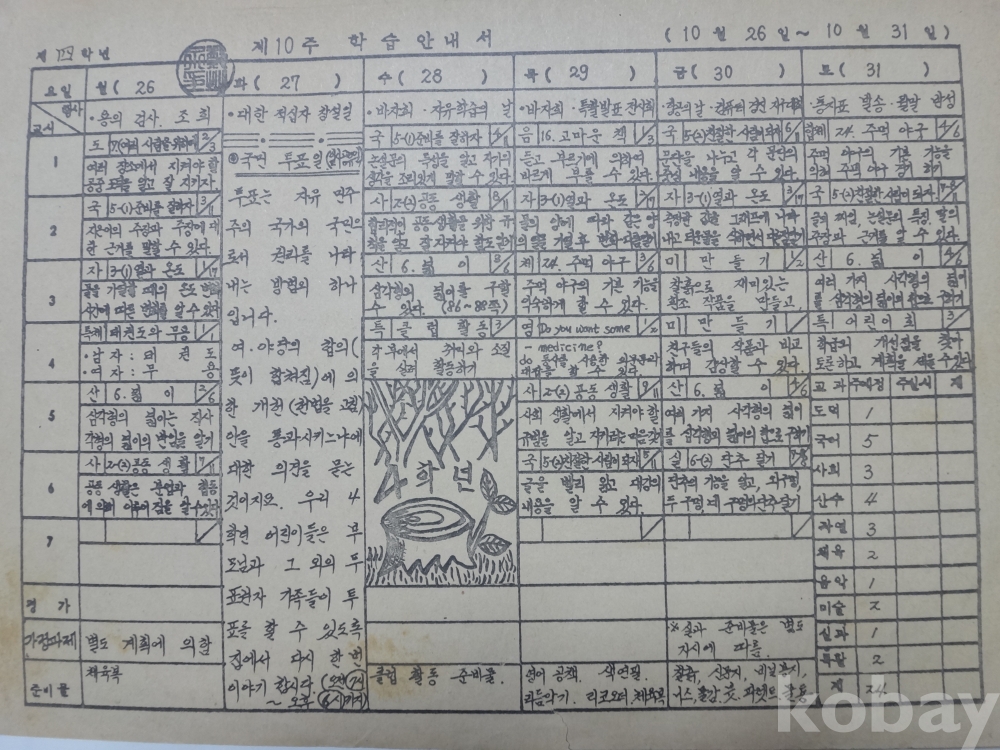 제 四 학년
제 10 주 학습안내서
( 10 월 26 일 ~ 10 월 31 일 )
요일
월 ( 26 )
화 ( 27 )
수 ( 28 )
목 ( 29 )
금 ( 30 )
토 ( 31 )
행사
교시
·용의 검사. 조회
·대한 적십자 창설일
·바자회 ·자유학습의 날
·바자회 ·특활발표 전시회
·통지표 발송 ·월말 반성
1
2/3
여러 장소에서 지켜야 할
국 5-(1)준비를 잘하자
자기의 주장과 주장에 대
한 근거를 말할 수 있다.
2
자 3-(1)열과 온도
3
특체 태권도와 무용 1/1
·남자 : 태 권 도
·여자 : 무 용
4
산 6. 넓 이 2/6
삼각형의 넓이는 직사
각형의 넓이의 반임을 알기
5
사 2-(2)공동 생활 7/11
공동 생활은 분업과 협동
6
7
평 가
가정과제
별도 계획에 의함
준비물
체육복
◎국민 투표일
투표는 자유 민주
주의 국가의 국민으
로서 권리를 나타
내는 방법의 하나
입니다.
여·야당의 합의(
뜻이 합쳐짐)에 의
한 개헌(헌법을 고침)
안을 통과시키느냐에
대한 의견을 묻는
것이지요. 우리 4
학년 어린이들은 부
모님과 그 외의 투
표권자 가족들이 투
표를 할 수 있도록
집에서 다시 한 번
이야기 합시다 (오전 7시
~ 오후 6시까지)
국 5-(1)준비를 잘하자
논설문의 특징을 알고 자기의
생각을 조리있게 말할 수 있다.
사 2-(2)공동 생활 8/11
합리적인 공동 생활을 위한 규
칙을 알고 잘 지켜야 함
산 6. 넓 이 3/6
삼각형의 넓이를 구할
수 있다. (86~88쪽)
특 클럽 활동 3
각 부에서 취미와 소질
을 살려 활동하기
4학년
클럽 활동 준비물.
음 16. 고마운 책 1/3
듣고 부르기에 의하여
바르게 부를 수 있다.
자 3-(1)열과 온도 2/17
체 24. 주먹 야구 3/6
주먹 야구의 기본 기능을
익숙하게 할 수 있다.
영 Do you want some 1/2
- medicine?
do 동사를 사용한 의문문과
대답을 할 수 있다.
사 2-(2)공동 생활 9/11
사회 생활에서 지켜야 할
규범을 알고 지키려는 마음갖기
국 5-(2)친절한 사람이 되자 5/11
글을 빨리 읽고 대강의
내용을 알 수 있다.
영어 공책. 색연필.
리듬악기. 리코오더. 체육복
국 5-(2)친절한 사람이 되자
문단을 나누고 각 문단의
중심 내용을 알 수 있다.
자 3-(1)열과 온도 3/17
측정한 값을 그래프에 나타
미 만 들 기 1/2
찰흙으로 재미있는
작품을 만들고,
미 만 들 기
친구들의 작품과 비교
하며 감상할 수 있다.
산 6. 넓 이 4/6
여러 가지 사각형의 넓이
를 삼각형의 넓이의 합으로 구하기
실 6-(2) 단추 달기 7-8
단추의 기능을 알고,
두 구멍, 네 구멍의 단추 달기
※실과 준비물은 별도
지시에 따름.
찰흙, 신문지, 비닐봉지,
체 24. 주먹 야구 4/6
주먹 야구의 기본 기능을
익혀 주먹 야구 경기 하기
국 5-(2)친절한 사람이 되자
글의 짜임, 논설문의 특징, 말의
주장과 근거를 알 수 있다.
산 6. 넓 이
여러 가지 사각형의 넓이
를 삼각형의 넓이의 합으로 구하기
특 어린이회 3
학급의 개선점을 찾아
토론하고 계획을 세울 수 있다
교 과 주예정 주실시 계
도덕 1
국어 5
사회 3
산수 4
자연 3
체육 2
음악 1
미술 2
실과 1
특활 2
계 24
kobay